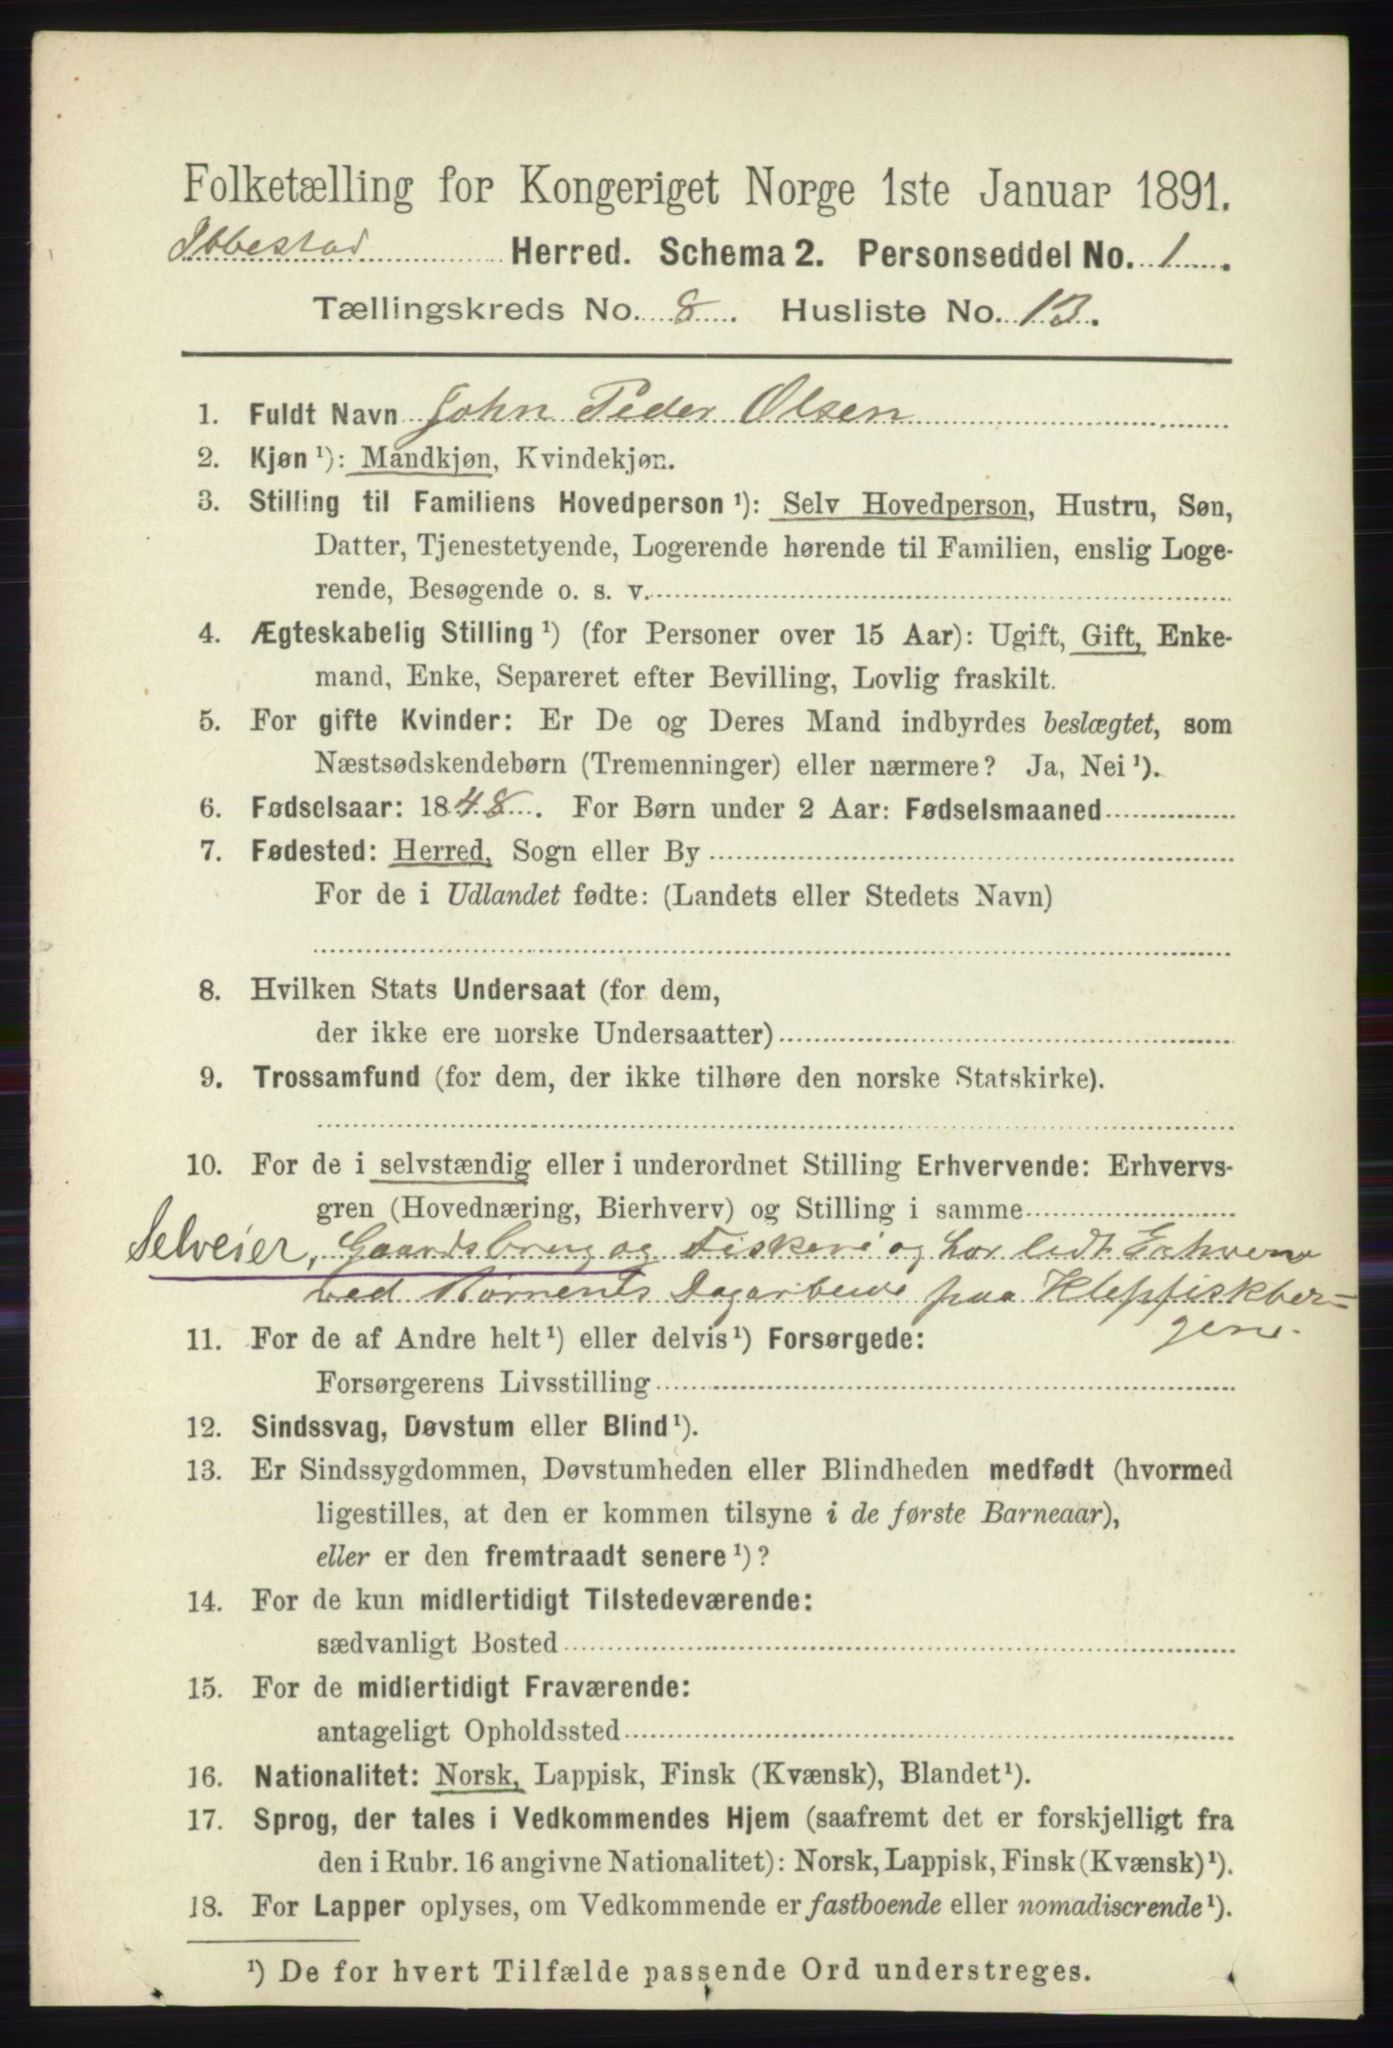 Folketælling for Kongeriget Norge 1ste Januar 1891.
Ibbestad Herred. Schema 2. Personseddel No. 1.
Tællingskreds No. 8. Husliste No. 13.
1. Fuldt Navn John Peder Olsen
2. Kjøn ¹): Mandkjøn, Kvindekjøn.
3. Stilling til Familiens Hovedperson ¹): Selv Hovedperson, Hustru, Søn,
Datter, Tjenestetyende, Logerende hørende til Familien, enslig Loge-
rende, Besøgende o. s. v.
4. Ægteskabelig Stilling ¹) (for Personer over 15 Aar): Ugift, Gift, Enke-
mand, Enke, Separeret efter Bevilling, Lovlig fraskilt.
5. For gifte Kvinder: Er De og Deres Mand indbyrdes beslægtet, som
Næstsødskendebørn (Tremenninger) eller nærmere? Ja, Nei ¹).
6. Fødselsaar: 1848. For Børn under 2 Aar: Fødselsmaaned
7. Fødested: Herred, Sogn eller By
For de i Udlandet fødte: (Landets eller Stedets Navn)
8. Hvilken Stats Undersaat (for dem,
der ikke ere norske Undersaatter)
9. Trossamfund (for dem, der ikke tilhøre den norske Statskirke).
10. For de i selvstændig eller i underordnet Stilling Erhvervende: Erhvervs-
gren (Hovednæring, Bierhverv) og Stilling i samme
Selveier, Gaardsbrug og Fiskeri og har lidt Erhverv
ved Børnenes Dagarbeide paa Klepfiskber=
gene.
11. For de af Andre helt ¹) eller delvis ¹) Forsørgede:
Forsørgerens Livsstilling
12. Sindssvag, Døvstum eller Blind ¹).
13. Er Sindssygdommen, Døvstumheden eller Blindheden medfødt (hvormed
ligestilles, at den er kommen tilsyne i de første Barneaar),
eller er den fremtraadt senere ¹)?
14. For de kun midlertidigt Tilstedeværende:
sædvanligt Bosted
15. For de midlertidigt Fraværende:
antageligt Opholdssted
16. Nationalitet: Norsk, Lappisk, Finsk (Kvænsk), Blandet ¹).
17. Sprog, der tales i Vedkommendes Hjem (saafremt det er forskjelligt fra
den i Rubr. 16 angivne Nationalitet): Norsk, Lappisk, Finsk (Kvænsk) ¹).
18. For Lapper oplyses, om Vedkommende er fastboende eller nomadiserende ¹).
¹) De for hvert Tilfælde passende Ord understreges.